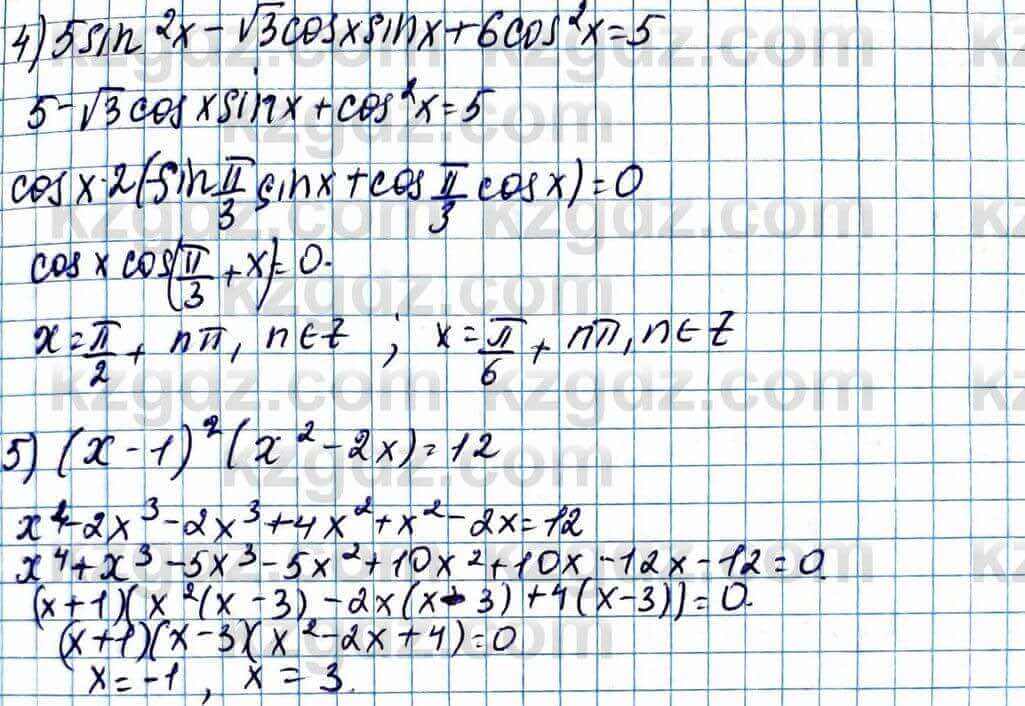 4) 5sin²x - √3cosxsinx + 6cos²x = 5
5 - √3cosxsinx + cos²x = 5
cosx·2(-sin π/3 sinx + cos π/3 cosx) = 0
cosx cos(π/3 + x) = 0.
x = π/2 + nπ, n∈Z ; x = π/6 + nπ, n∈Z
5) (x-1)²(x²-2x) = 12
x⁴ - 2x³ - 2x³ + 4x² + x² - 2x = 12
x⁴ + x³ - 5x³ - 5x² + 10x² + 10x - 12x - 12 = 0.
(x+1)(x²(x-3) - 2x(x-3) + 4(x-3)) = 0.
(x+1)(x-3)(x²-2x+4) = 0
x = -1, x = 3.
kzgdz.com